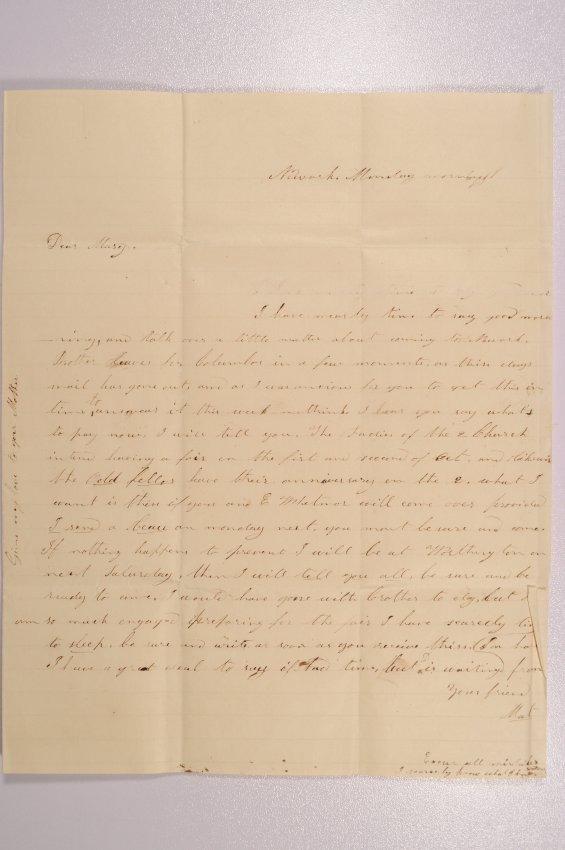 Newark. Monday morning
Dear Mary.
I have nearly time to say good mor-
ning, and talk over a little matter about coming to Newark.
Brother leaves for Columbus in a few moments, as this days
mail has gone out, and as I was ancious for you to get this in
time to answear it this week methinks I hear you say what's
to pay now. I will tell you. The Ladies of the 2 Church
intend having a fair on the first and second of Oct. and likewise
the Odd fellos have their annaversary on the 2. what I
want is this if you and E Whitmor will come over provided
I send a beau on monday next, you must be sure and come.
If nothing happens to prevent I will be at Worthington on
next Saturday, then I will tell you all, be sure and be
ready to come. I would have gone with brother to day, but I
am so much engaged preparing for the fair I have scarcely
to sleep. be sure and write as soon as you receive this.
I have a great deal to say if I had time, but is waiting from
Your friend
Mat
Excuse all mistakes
I scarcely know what I have
Give my love to your Mother